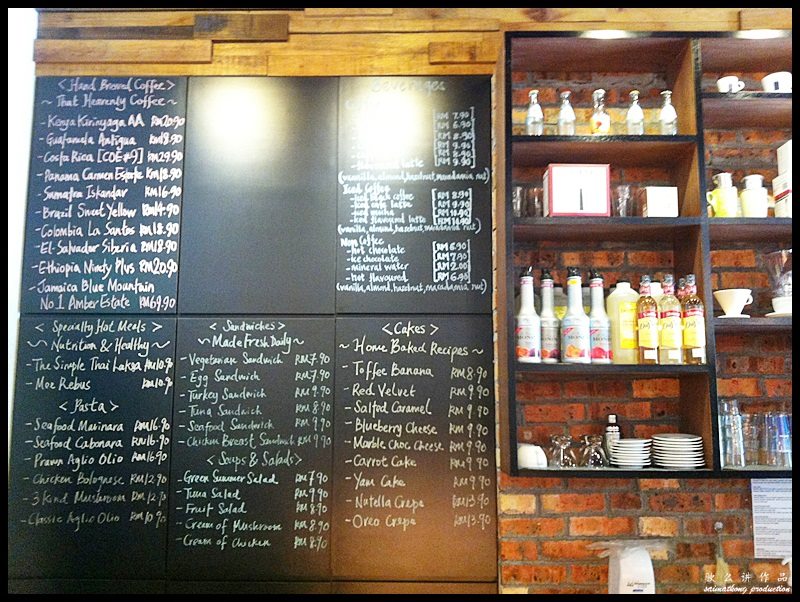 < Hand Brewed Coffee >
~ That Heavenly Coffee ~
- Kenya Kirinyaga AA RM20.90
- Guatemala Antigua RM18.90
- Costa Rica [COE#9] RM29.90
- Panama Carmen Estate RM18.90
- Sumatra Iskandar RM16.90
- Brazil Sweet Yellow RM14.90
- Colombia La Santos RM18.90
- El-Salvador Siberia RM18.90
- Ethiopia Ninety Plus RM20.90
- Jamaica Blue Mountain
No 1 Amber Estate RM69.90
Beverages
RM 7.90
RM 6.90
RM 8.90
RM 9.90
RM 8.90
latte RM 9.90
(vanilla, almond, hazelnut, macadamia nut)
Iced Coffee
- iced black coffee RM 8.90
- iced latte RM 9.90
- iced mocha RM 10.90
- iced flavoured latte RM 10.90
(vanilla, almond, hazelnut, macadamia nut)
Non Coffee
- hot chocolate RM 6.90
- ice chocolate RM 7.90
- mineral water RM 2.00
- hot flavoured RM 6.90
(vanilla, almond, hazelnut, macadamia nut)
< Specialty Hot Meals >
~ Nutrition & Healthy ~
- The Simple Thai Laksa RM10.90
- Moe Rebus RM10.90
< Pasta >
- Seafood Marinara RM16.90
- Seafood Cabonara RM16.90
- Prawn Aglio Olio RM16.90
- Chicken Bolognese RM12.90
- 3 kind Mushroom RM12.90
- Classic Aglio Olio RM10.90
< Sandwiches >
~ Made Fresh Daily ~
- Vegetarian Sandwich RM7.90
- Egg Sandwich RM7.90
- Turkey Sandwich RM9.90
- Tuna Sandwich RM8.90
- Seafood Sandwich RM9.90
- Chicken Breast Sandwich RM9.90
< Soups & Salads >
- Green Summer Salad RM7.90
- Tuna Salad RM9.90
- Fruit Salad RM8.90
- Cream of Mushroom RM8.90
- Cream of Chicken RM8.90
< Cakes >
~ Home Baked Recipes ~
- Toffee Banana RM8.90
- Red Velvet RM9.90
- Salted Caramel RM9.90
- Blueberry Cheese RM9.90
- Marble Choc Cheese RM9.90
- Carrot Cake RM9.90
- Yam Cake RM9.90
- Nutella Crepe RM13.90
- Oreo Crepe RM13.90
MONIN
saimatkong production